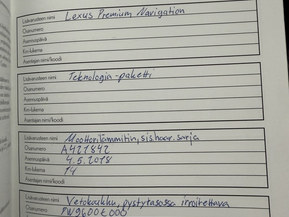 Lisävarusteen nimi Lexus Premium Navigation
Osanumero
Asennuspäivä
Km-lukema
Asentajan nimi/koodi
Lisävarusteen nimi Teknologia-paketti
Osanumero
Asennuspäivä
Km-lukema
Asentajan nimi/koodi
Lisävarusteen nimi Moottorilämmitin, sishaar. sarja
Osanumero A421842
Asennuspäivä 4.5.2018
Km-lukema 14
Asentajan nimi/koodi
Lisävarusteen nimi Vetokoukku, pystytasossa irroitettava
Osanumero PW960